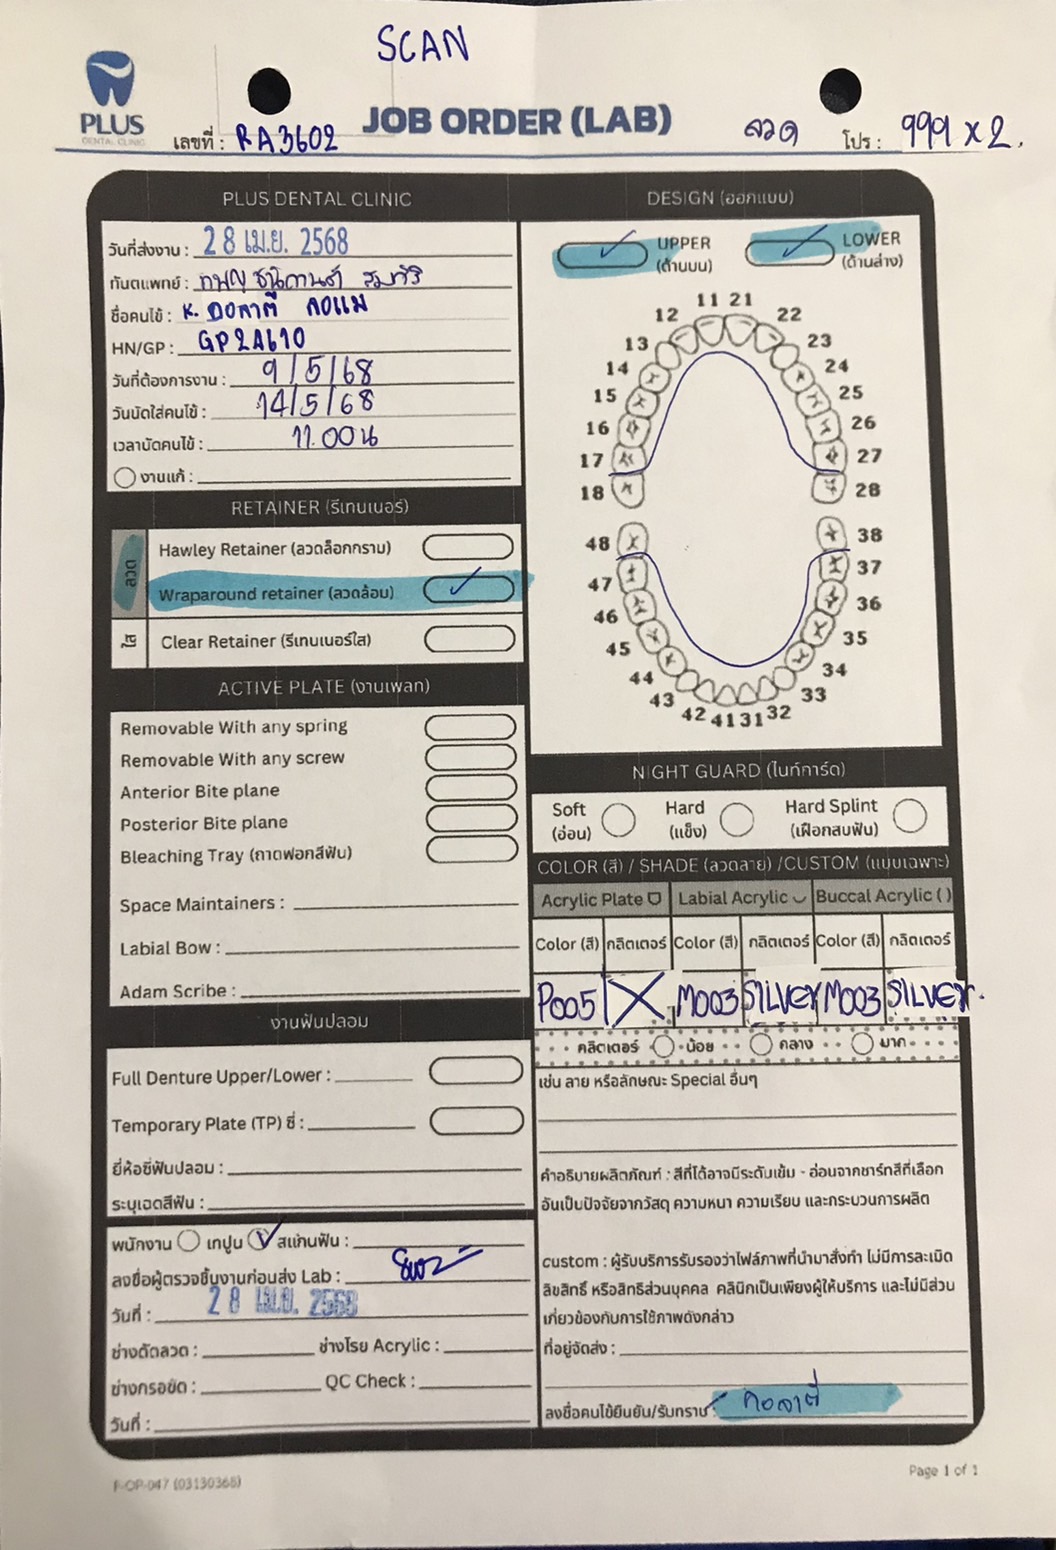 SCAN
PLUS
DENTAL CLINIC
เลขที่ : RA3602
JOB ORDER (LAB)
ลวด โปร : 999 x 2.
PLUS DENTAL CLINIC
วันที่ส่งงาน : 28 เม.ย. 2568
ทันตแพทย์ : ทพญ
ชื่อคนไข้ : K. ดอลาตี
HN/GP : GP2A610
วันที่ต้องการงาน : 9/5/68
วันนัดใส่คนไข้ : 14/5/68
เวลานัดคนไข้ : 11.00น
งานแก้ :
RETAINER (รีเทนเนอร์)
ลวด
Hawley Retainer (ลวดล็อกกราม)
Wraparound retainer (ลวดล้อม)
ใส
Clear Retainer (รีเทนเนอร์ใส)
ACTIVE PLATE (งานเพลท)
Removable With any spring
Removable With any screw
Anterior Bite plane
Posterior Bite plane
Bleaching Tray (ถาดฟอกสีฟัน)
Space Maintainers :
Labial Bow :
Adam Scribe :
งานฟันปลอม
Full Denture Upper/Lower :
Temporary Plate (TP) ซี่ :
ยี่ห้อซี่ฟันปลอม :
ระบุเฉดสีฟัน :
พนักงาน เทปูน สแกนฟัน :
ลงชื่อผู้ตรวจชิ้นงานก่อนส่ง Lab :
วันที่ : 28 เม.ย. 2568
ช่างดัดลวด : ช่างโรย Acrylic :
ช่างกรอขัด : QC Check :
วันที่ :
DESIGN (ออกแบบ)
UPPER LOWER
(ด้านบน) (ด้านล่าง)
11 21
12 22
13 23
14 24
15 25
16 26
17 27
18 28
48 38
47 37
46 36
45 35
44 34
43 33
42 41 31 32
NIGHT GUARD (ไนท์การ์ด)
Soft Hard Hard Splint
(อ่อน) (แข็ง) (เฝือกสบฟัน)
COLOR (สี) / SHADE (ลวดลาย) /CUSTOM (แบบเฉพาะ)
Acrylic Plate Labial Acrylic Buccal Acrylic ( )
Color (สี) กลิตเตอร์ Color (สี) กลิตเตอร์ Color (สี) กลิตเตอร์
P005 X M003 SILVER M003 SILVER.
กลิตเตอร์ น้อย กลาง มาก
เช่น ลาย หรือลักษณะ Special อื่นๆ
คำอธิบายผลิตภัณฑ์ : สีที่ได้อาจมีระดับเข้ม - อ่อนจากชาร์ทสีที่เลือก
อันเป็นปัจจัยจากวัสดุ ความหนา ความเรียบ และกระบวนการผลิต
custom : ผู้รับบริการรับรองว่าไฟล์ภาพที่นำมาสั่งทำ ไม่มีการละเมิด
ลิขสิทธิ์ หรือสิทธิส่วนบุคคล คลินิกเป็นเพียงผู้ให้บริการ และไม่มีส่วน
เกี่ยวข้องกับการใช้ภาพดังกล่าว
ที่อยู่จัดส่ง :
ลงชื่อคนไข้ยืนยัน/รับทราบ :
F-OP-047 (03130368)
Page 1 of 1